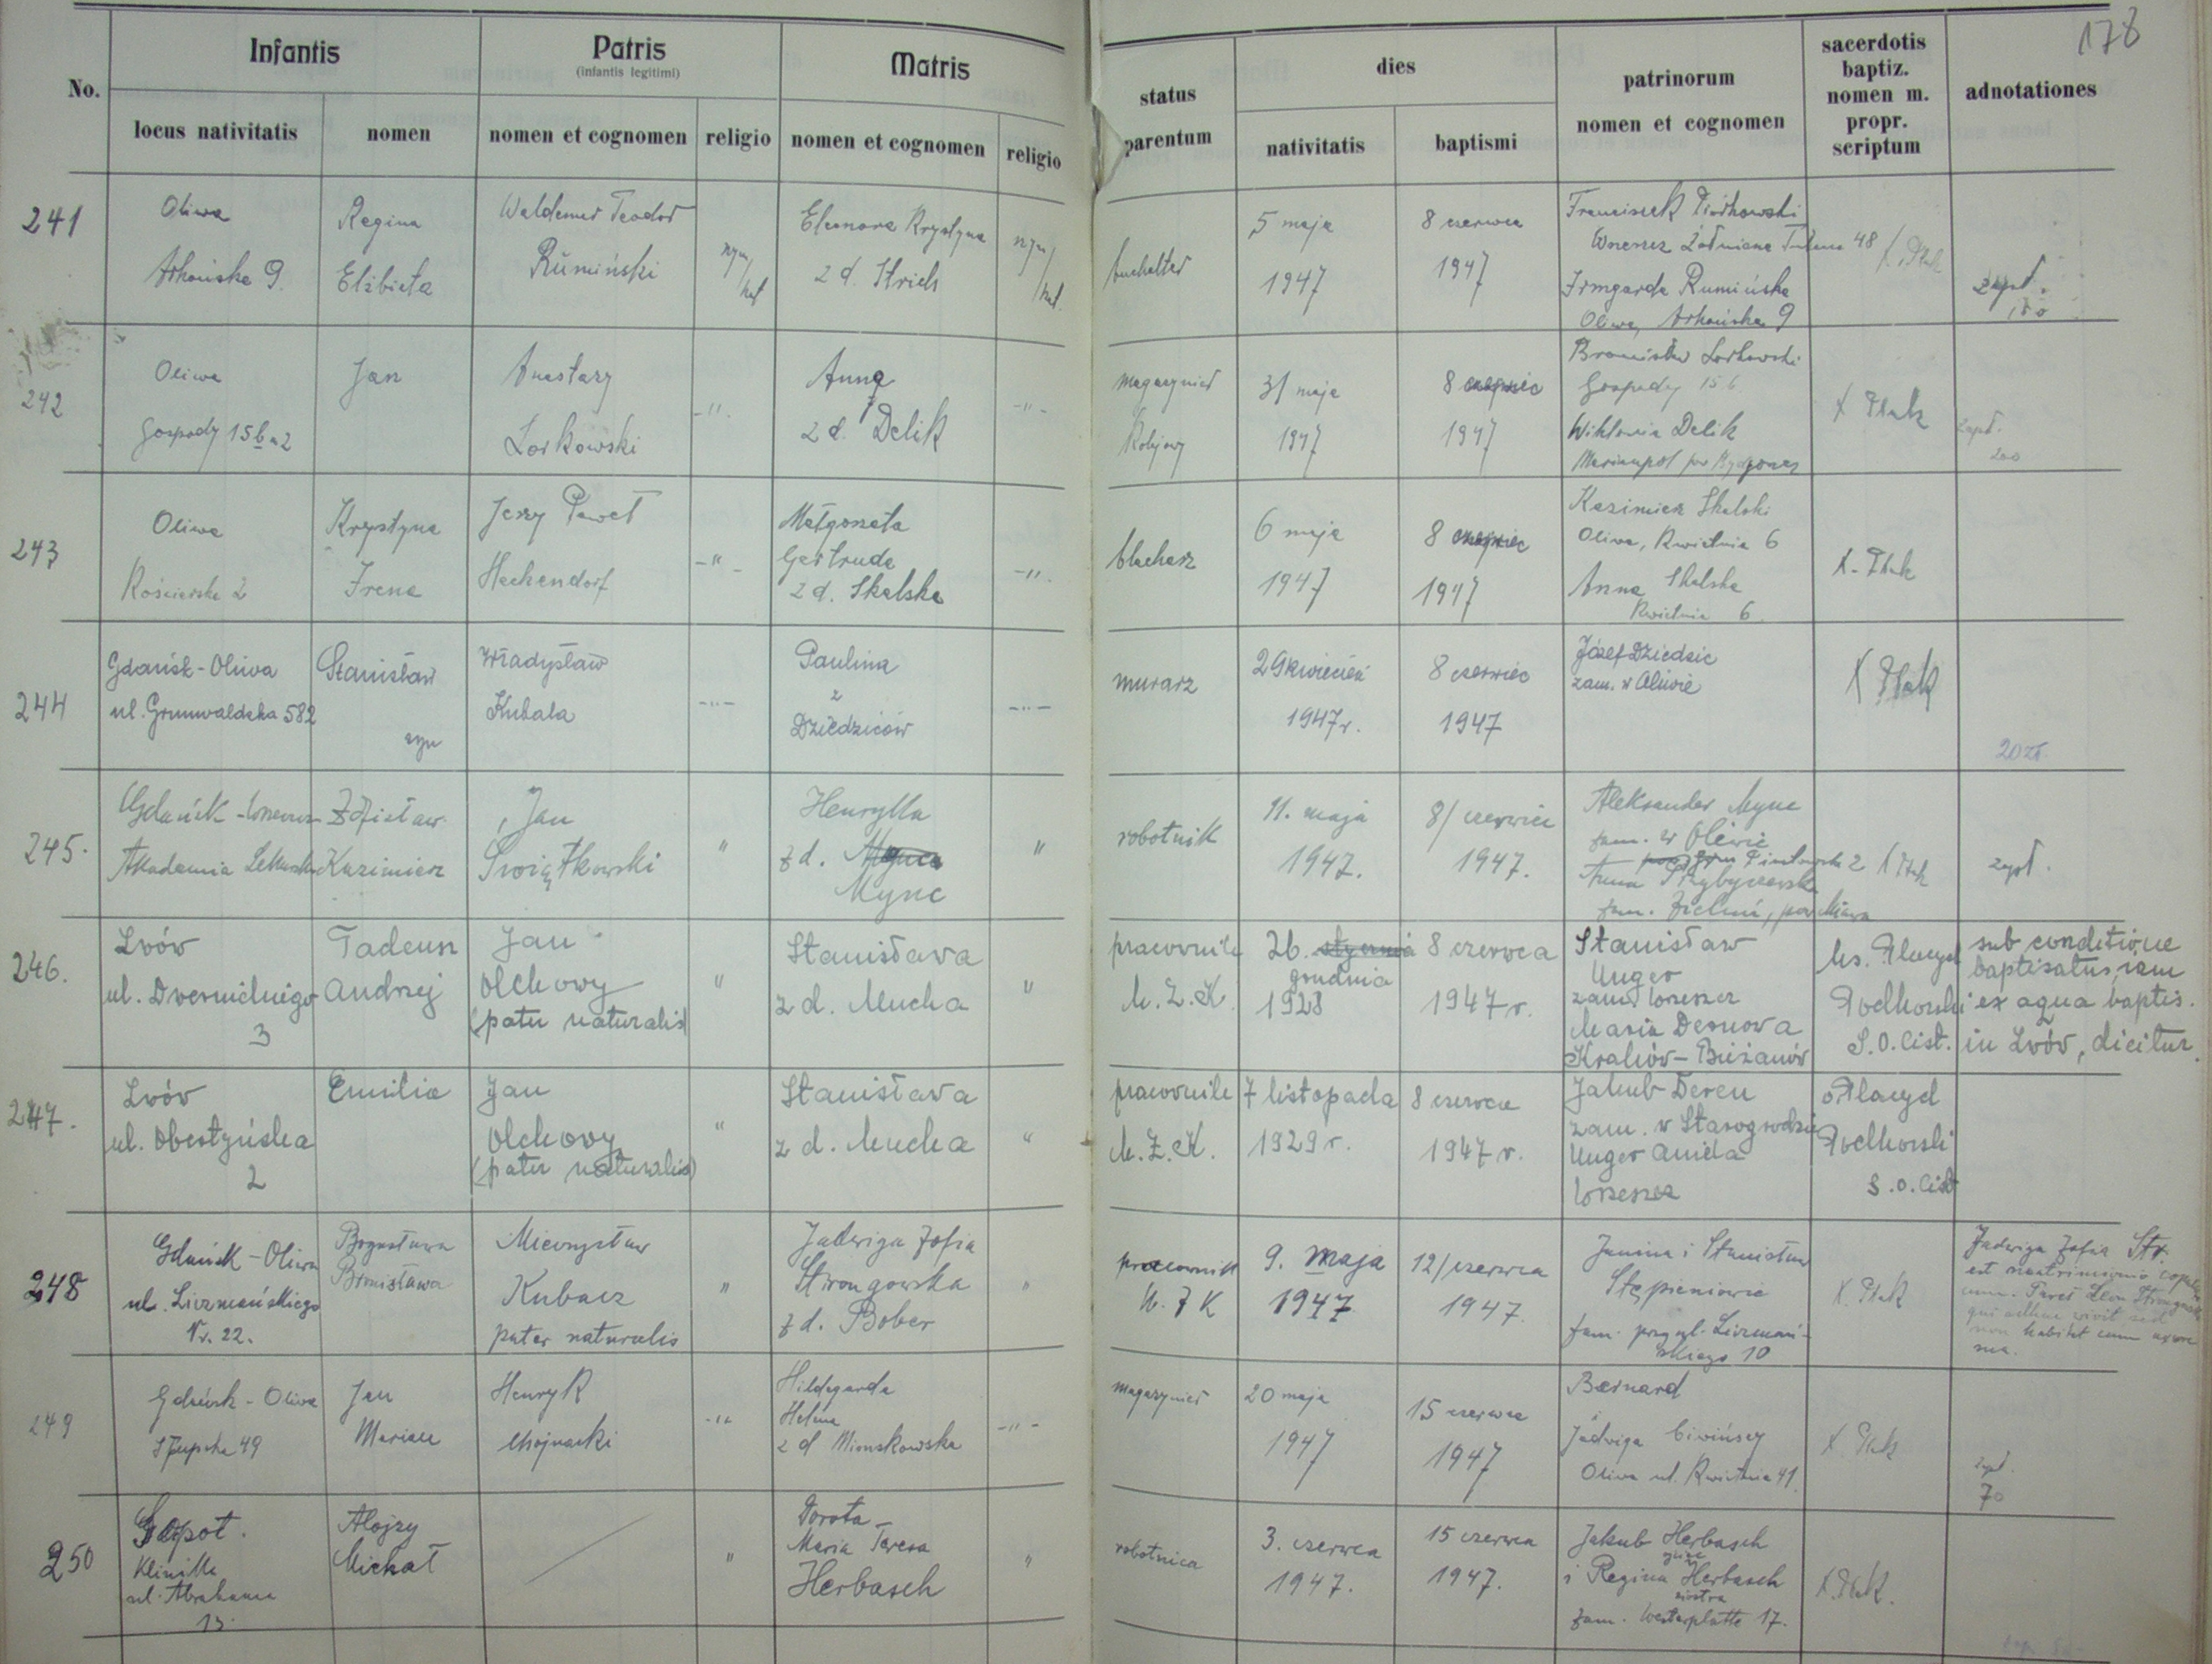 178
No.
Infantis
locus nativitatis
nomen
Patris
(infantis legitimi)
nomen et cognomen
religio
Matris
nomen et cognomen
religio
status
parentum
dies
nativitatis
baptismi
patrinorum
nomen et cognomen
sacerdotis
baptiz.
nomen m.
propr.
scriptum
adnotationes
241
Oliwa
Arkońska 9.
Regina
Elżbieta
Waldemar Teodor
Rumiński
rzym/
kat
Eleonora Krystyna
z d. Strich
rzym/
kat.
buchalter
5 maja
1947
8 czerwca
1947
Franciszek Piórkowski
Wrzeszcz 48
Irmgarda Rumińska
Oliwa, Arkońska 9
X. Ptak
zapł.
150
242
Oliwa
Gospody 15b
Jan
Anastazy
Lorkowski
-"-
Anna
z d. Delik
-"-
magazynier
Kolejowy
31 maja
1947
8 czerwiec
1947
Bronisław Lorkowski
Gospody 15b
Wiktoria Delik
X Ptak
zapł.
200
243
Oliwa
Kościerska 2
Krystyna
Irena
Jerzy Paweł
Heckendorf
-"-
Małgorzata
Gertruda
z d. Skalska
-"-
blacharz
6 maja
1947
8 czerwiec
1947
Kazimierz Skalski
Oliwa, Kwietnia 6
Anna Skalska
Kwietnia 6
X. Ptak
244
Gdańsk-Oliwa
ul. Grunwaldzka 582
Stanisław
syn
Władysław
Kubala
-"-
Paulina
z
Dziedziców
-"-
murarz
29 kwiecień
1947 r.
8 czerwiec
1947
Józef Dziedzic
zam. w Oliwie
X Ptak
20 zł
245.
Gdańsk-Wrzeszcz
Akademia Lekarska
Zdzisław
Kazimierz
Jan
Świątkowski
"
Henryka
z d.
Mync
"
robotnik
11. maja
1947.
8/ czerwiec
1947.
Aleksander Mync
zam. w Oliwie
Anna Przybyszewska
X Ptak
zapł.
246.
Lwów
ul. Dwernickiego
3
Tadeusz
Andrzej
Jan
Olchowy
(pater naturalis)
"
Stanisława
z d. Mucha
"
pracownik
M.Z.K.
26. stycznia
grudnia
1928
8 czerwca
1947 r.
Stanisław
Unger
zam. Wrzeszcz
Maria Dernowa
Kraków-Bieżanów
ks. Placyd
Podhorski
S.O.Cist.
sub conditione
baptisatus, iam
ex aqua baptis.
in Lwów, dicitur.
247.
Lwów
ul. Obertyńska
2
Emilia
Jan
Olchowy
(pater naturalis)
"
Stanisława
z d. Mucha
"
pracownik
M.Z.K.
7 listopada
1929 r.
8 czerwca
1947 r.
Jakub Deren
zam. w Starogrodzie
Unger Aniela
Wrzeszcz
o. Placyd
Podhorski
S.O.Cist
248
Gdańsk-Oliwa
ul. Liczmańskiego
Nr. 22.
Bogusława
Bronisława
Mieczysław
Kubacz
pater naturalis
"
Jadwiga Zofia
Strongowska
z d. Bober
"
pracownik
M.Z.K
9. maja
1947
12/ czerwca
1947.
Janina i Stanisław
Stępieniowie
zam. przy ul. Liczmań-
skiego 10
X. Ptak
Jadwiga Zofia Str.
est matrimonio
qui adhuc vivit sed
non habitat cum uxore
sua.
249
Gdańsk-Oliwa
Słupska 49
Jan
Marian
Henryk
Chojnacki
-"-
Hildegarda
Helena
z d.
-"-
magazynier
20 maja
1947
15 czerwca
1947
Bernard
Jadwiga Ciwińscy
Oliwa ul. Kwietnia 41
X Ptak
zapł.
70
250
Sopot.
Klinika
ul. Abrahama
13.
Alojzy
Michał
"
Dorota
Maria Teresa
Herbasch
"
robotnica
3. czerwca
1947.
15 czerwca
1947.
Jakub Herbasch
ojciec
i Regina Herbasch
siostra
zam. Westerplatte 17.
X. Ptak.